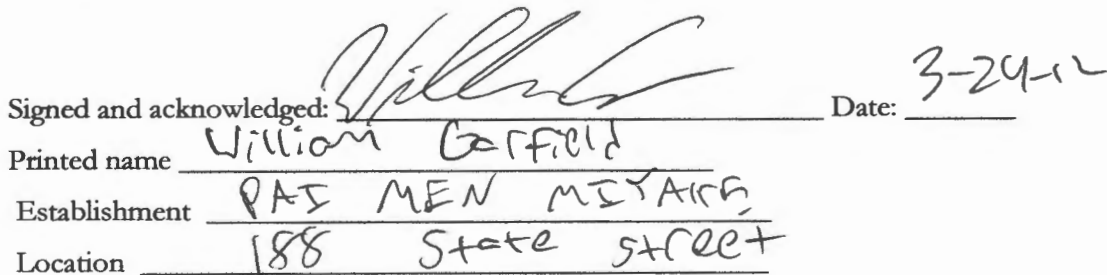 Signed and acknowledged: Date: 3-24-12
Printed name William Garfield
Establishment PAI MEN MIYAKE
Location 188 State street